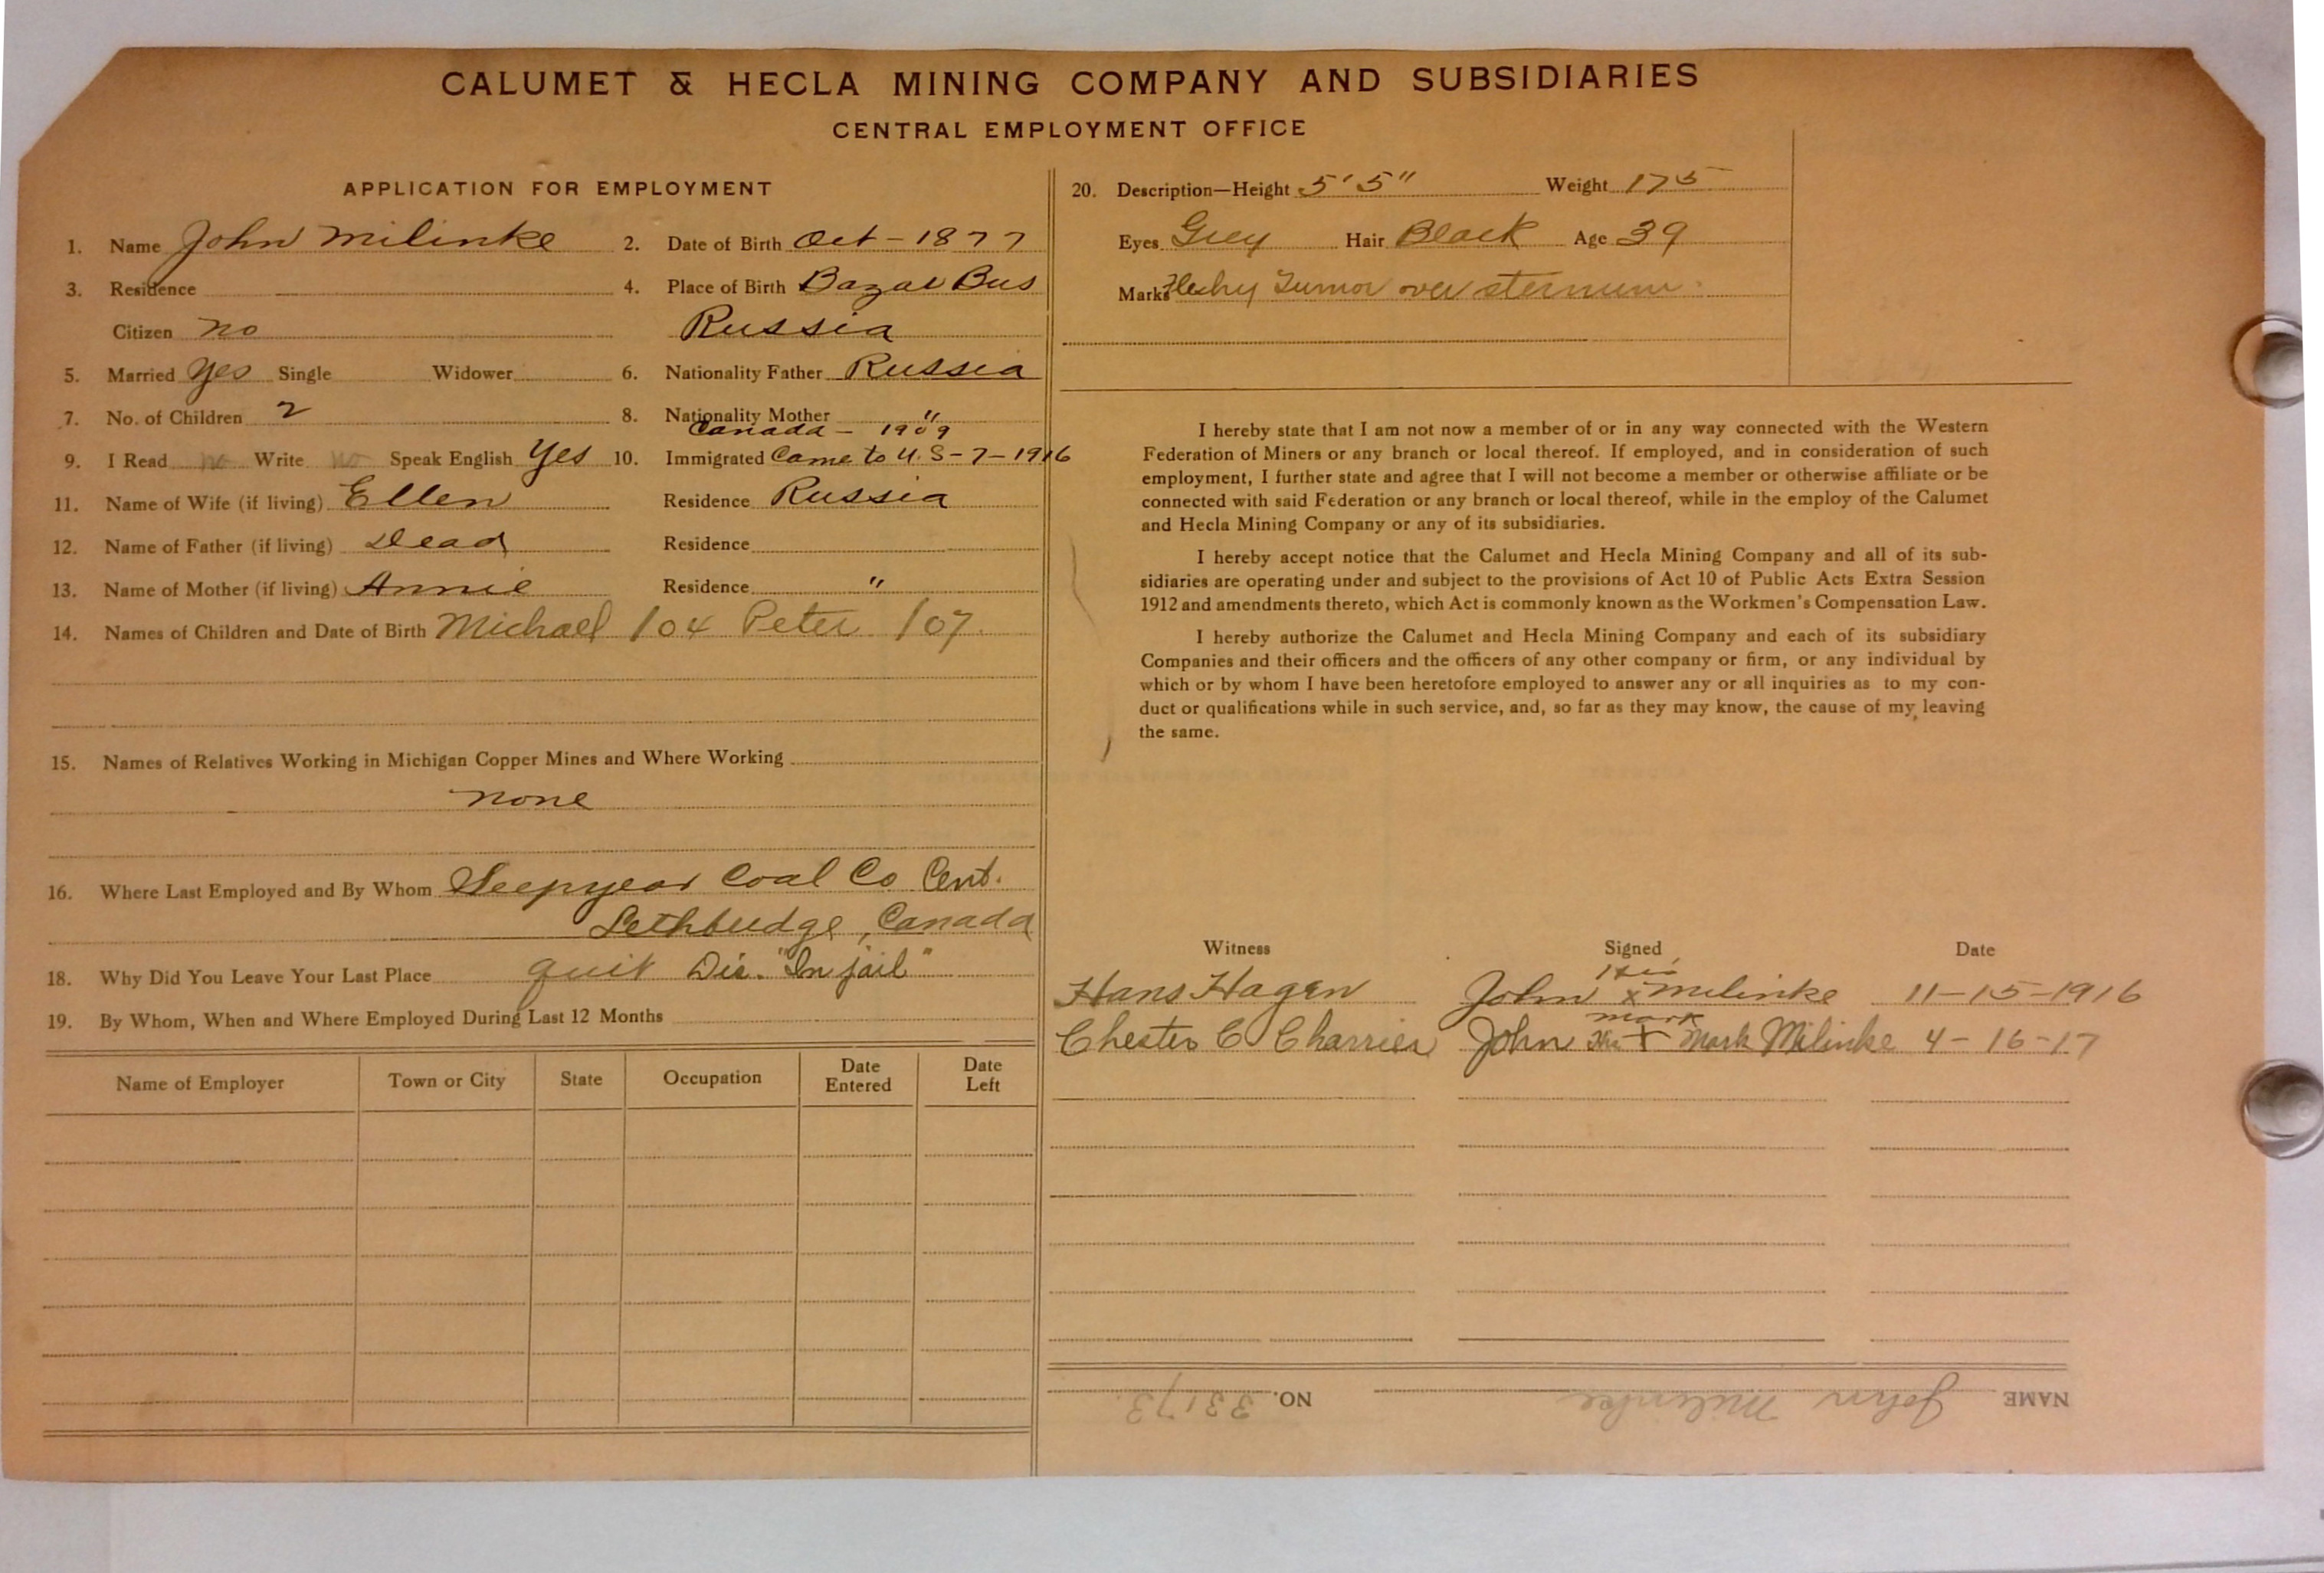 CALUMET & HECLA MINING COMPANY AND SUBSIDIARIES
CENTRAL EMPLOYMENT OFFICE
APPLICATION FOR EMPLOYMENT
1. Name John Milinke 2. Date of Birth Oct - 1877
3. Residence 4. Place of Birth Bazal Bus
Citizen no Russia
5. Married Yes Single Widower 6. Nationality Father Russia
7. No. of Children 2 8. Nationality Mother "
Canada - 1909
9. I Read no Write no Speak English Yes 10. Immigrated Came to U.S - 7 - 1916
11. Name of Wife (if living) Ellen Residence Russia
12. Name of Father (if living) Dead Residence
13. Name of Mother (if living) Annie Residence "
14. Names of Children and Date of Birth Michael 104 Peter 107.
15. Names of Relatives Working in Michigan Copper Mines and Where Working
none
16. Where Last Employed and By Whom Coal Co Cent.
Lethbudge, Canada
18. Why Did You Leave Your Last Place quit Dis. "In jail"
19. By Whom, When and Where Employed During Last 12 Months
Name of Employer Town or City State Occupation Date Entered Date Left
20. Description—Height 5'5" Weight 175
Eyes Grey Hair Black Age 39
Marks Fleshy Tumor over sternum.
I hereby state that I am not now a member of or in any way connected with the Western
Federation of Miners or any branch or local thereof. If employed, and in consideration of such
employment, I further state and agree that I will not become a member or otherwise affiliate or be
connected with said Federation or any branch or local thereof, while in the employ of the Calumet
and Hecla Mining Company or any of its subsidiaries.
I hereby accept notice that the Calumet and Hecla Mining Company and all of its sub-
sidiaries are operating under and subject to the provisions of Act 10 of Public Acts Extra Session
1912 and amendments thereto, which Act is commonly known as the Workmen's Compensation Law.
I hereby authorize the Calumet and Hecla Mining Company and each of its subsidiary
Companies and their officers and the officers of any other company or firm, or any individual by
which or by whom I have been heretofore employed to answer any or all inquiries as to my con-
duct or qualifications while in such service, and, so far as they may know, the cause of my leaving
the same.
Witness Signed Date
His
Hans Hagen John x Milinke 11-15-1916
mark
Chester C Charrier John His + Mark Milinke 4-16-17
NAME John Milinke NO. 33173.